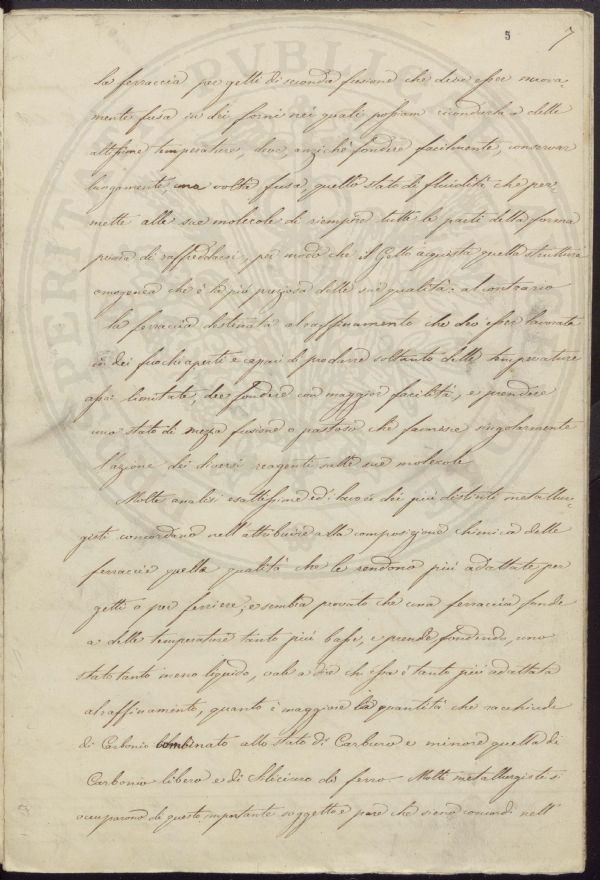 5 7
La ferraccia per getti di seconda fusione che deve esser nuova-
mente fusa in dei forni nei quali possiam ricondurla a delle
altissime temperature, deve, anziché fondere facilmente, conservar
lungamente una volta fusa, quello stato di fluidità che per
mette alle sue molecole di riempire tutte le parti della forma
prima di raffreddarsi, per modo che il Getto acquista quella struttura
omogenea che è la più preziosa delle sue qualità: al contrario
la ferraccia destinata al raffinamento che deo esser lavorata
in dei fuochi aperti e capaci di produrre soltanto delle temperature
assai limitate, dee fondere con maggior facilità, e prendere
uno stato di mezza fusione o pastoso che favorisce singolarmente
l'azione dei diversi reagenti sulle sue molecole
Molte analisi esattissime ed i lavori dei più distinti metallur-
gisti concordano nell'attribuire alla composizione chimica delle
ferraccie quelle qualità che le rendono più adattate per
getti o per ferriere; e sembra provato che una ferraccia fonde
a delle temperature tanto più basse, e prende, fondendo, uno
stato tanto meno liquido, vale a dire ch'essa è tanto più adattata
al raffinamento, quanto è maggiore la quantità che racchiude
di Carbonio combinato allo stato di Carburo e minore quella di
Carbonio libero e di Siliciuro di ferro. Molti metallurgisti si
occuparono di questo importante soggetto e pare che sieno concordi nell'